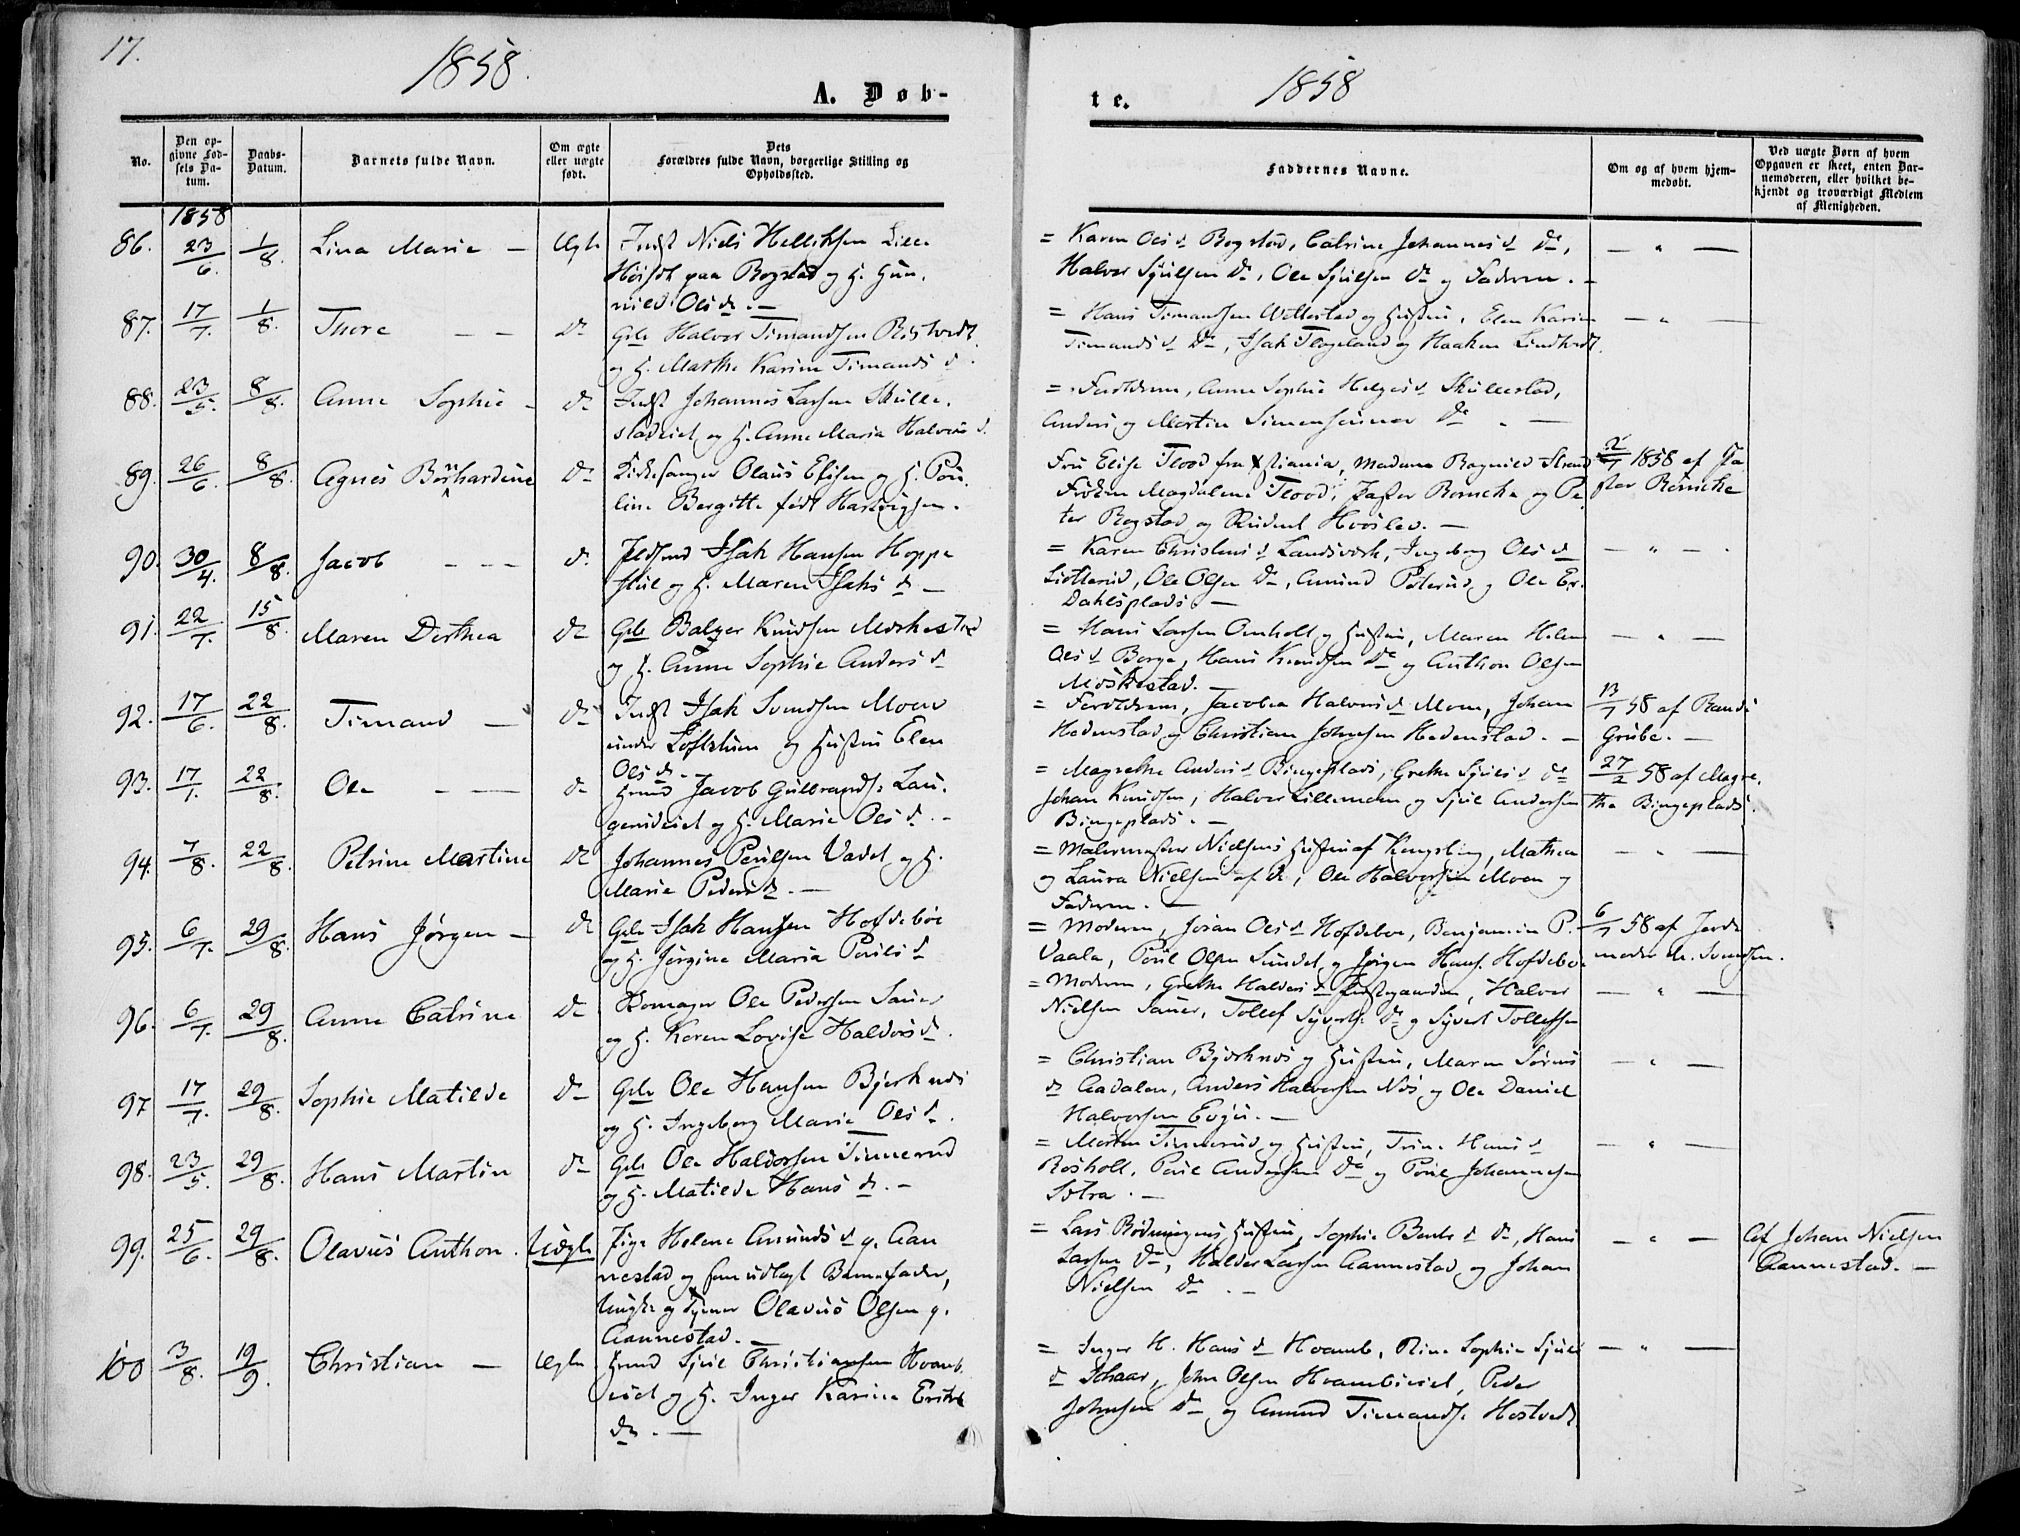 17.
1858.
A. Døb-
No.
Den op-
givne Fød-
sels Da-
tum.
Daabs-
Datum.
Barnets fulde Navn.
Om ægte
eller uægte
født.
Dets
Forældres fulde Navn, borgerlige Stilling og
Opholdssted.
1858
86. 23/6. 1/8. Lina Marie — Ægte Indst Niels Helliksen Lille
Høiset paa Bogstad og H. Gun.
nild Olsdr. —
87. 17/7. 1/8. Thore — — do Gaardbr Halvor Timandsen Ristvedt
og H. Marthe Karine Timandsd.
88. 23/5. 8/8. Anne Sophie - do Indst Johannes Larsen Skulle.
stadeiet og H. Anne Maria Halvorsd.
89. 26/6. 8/8. Agnes Børhardine do Kirkesanger Olaus Ellsen og H. Pou.
line Bergitte født Hartvigsen.
90. 30/4. 8/8. Jacob — — — do Isak Hansen Hoppe
stul og H. Maren Isaksdr —
91. 22/7. 15/8. Maren Dorthea do Gaardbr Balzer Knudsen Moskestad
og H. Anne Sophie Andersd
92. 17/6. 22/8. Timand — do Indst Isak Svendsen Moen
under Loftsthun og Hustru Elen
Olsdr.
93. 17/1. 22/8. Ole — — do Jacob Gulbrands. Lau.
gerudeiet og H. Marie Olsd. -
94. 7/8. 22/8. Petrine Martine do Johannes Poulsen Vadet og H.
Marie Pedersdr. —
95. 6/7. 29/8. Hans Jørgen — do Gaardbr Isak Hansen Hofdebøe
og H. Jørgine Maria Poulsd
96. 6/7. 29/8. Anne Catrine do Ole Pedersen Sauer
og H. Karen Lovise Haldorsd.
97 17/7. 29/8. Sophie Matilde do Gaardbr Ole Hansen Bjerknæs
og H. Ingeborg Marie Olsd.
98. 23/5. 29/8. Hans Martin do Gaardbr Ole Haldorsen Tinnerud
og H. Matilde Hansdr. -
99. 25/6. 29/8. Olavus Anthon. Uægte Pige Helene Amundsd g. Aan
nestad og som udlagt Barnefader,
Ungk. og Tjener Olavus Olsen g.
Aannestad.
100 3/8. 19/9. Christian — Ægte Sjul Christiansen Hvamb.
eiet og H. Inger Karine Eriks
dr. —
1858
te.
Faddernes Navne.
Om og af hvem hjem-
medøbt.
Ved uægte Børn af hvem
Opgaven er skeet, enten Bar-
nemoderen, eller hvilket be-
kjendt og troværdigt Medlem
af Menigheden.
= Karen Olsd Bogstad, Catrine Johannesd do, — " —
Halvor Sjulsen do, Ole Sjulsen do og Faderen. -
= Hans Timansen Wettestad og Hustru, Elen Karine — " —
Timandsd do, Isak Tlogeland og Haaken Lindtvedt.
= Forældrene, Anne Sophie Helgesd Skullestad,
Anders og Martin Simensønner do " —
Fru Elise Flood fra Xstiania, Madame Ragnild Strand 2/7 1858 af Pa
Frøken Magdalene Flood, Pastor Børncke og Pe stor Børncke
ter Bogstad og Student Hvoslev. —
= Karen Christensd Landsverk, Ingeborg Olsd — " —
Listterud, Ole Olsen do, Amund Peterud og Ole Er.
Dahlsplads. —
= Hans Larsen Omholt og Hustru, Maren Helene — " —
Olsd Borge, Hans Knudsen do og Anthon Olsen
Moskestad. —
= Forældrene, Jacobea Halvorsd Moen, Johan 13/7 58 af Randi
Hedenstad og Christian Johnsen Hedenstad. — Grube. —
= Magrethe Andersd Bingeplads, Grethe Sjulsd do 27/2 58 af Magre.
Johan Knudsen, Halvor Lillemoen og Sjul Andersen the Bingeplads.
Bingeplads. —
= Malermester Nielsens Hustru af Kongsberg, Mathea — " —
og Laura Nielsen af do, Ole Halvorsen Moen og
Faderen. —
= Moderen, Joran Olsd Hofdeboe, Benjamin P. 6/7 58 af Jorde
Vaala, Poul Olsen Sundet og Jørgen Hans. Hofdeboe moder M. Svendsen.
= Moderen, Grethe Haldorsd, Halvor — " —
Nielsen Sauer, Tollef Syverts. do og Syvert Tollefsen
= Christian Bjerknæs og Hustru, Maren Sørens — " —
d Aadalen, Anders Halvorsen Næs og Ole Daniel
Halvorsen Evju. —
= Morten Tinnerud og Hustru, Trine Hansd — " —
Rosholt, Poul Andersen do og Poul Johannesen
Sotra. —
= Lars Rødningens Hustru, Sophie Bentsd do, Hans — " — Af Johan Nielsen
Larsen do, Haldor Larsen Aannestad og Johan Aannestad. —
Nielsen do. -
= Inger H. Hansd Hvamb, Rine Sophie Sjuls — " —
d Skaar, John Olsen Hvambeiet, Peder
Johnsen do og Amund Timands. Hostvedt.